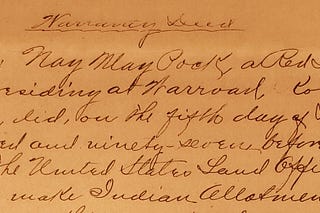 Warranty Deed
Nay May Pock, a Red L
residing at Warroad, Ro
, did, on the fifth day of
ed and ninety-seven, before
the United States Land Offi
make Indian Allotmen